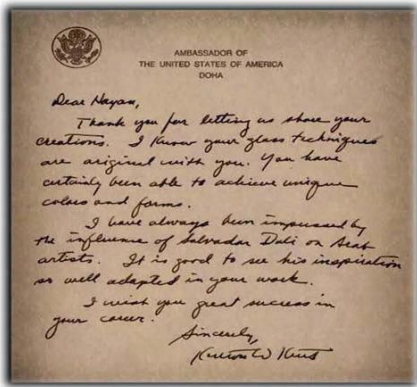 AMBASSADOR OF
THE UNITED STATES OF AMERICA
DOHA
Dear Hayan,
Thank you for letting us share your
creations. I know your glass techniques
are original with you. You have
certainly been able to achieve unique
colors and forms.
I have always been impressed by
the influence of Salvador Dali on Arab
artists. It is good to see his inspiration
so well adapted in your work.
I wish you great success in
your career.
Sincerely,